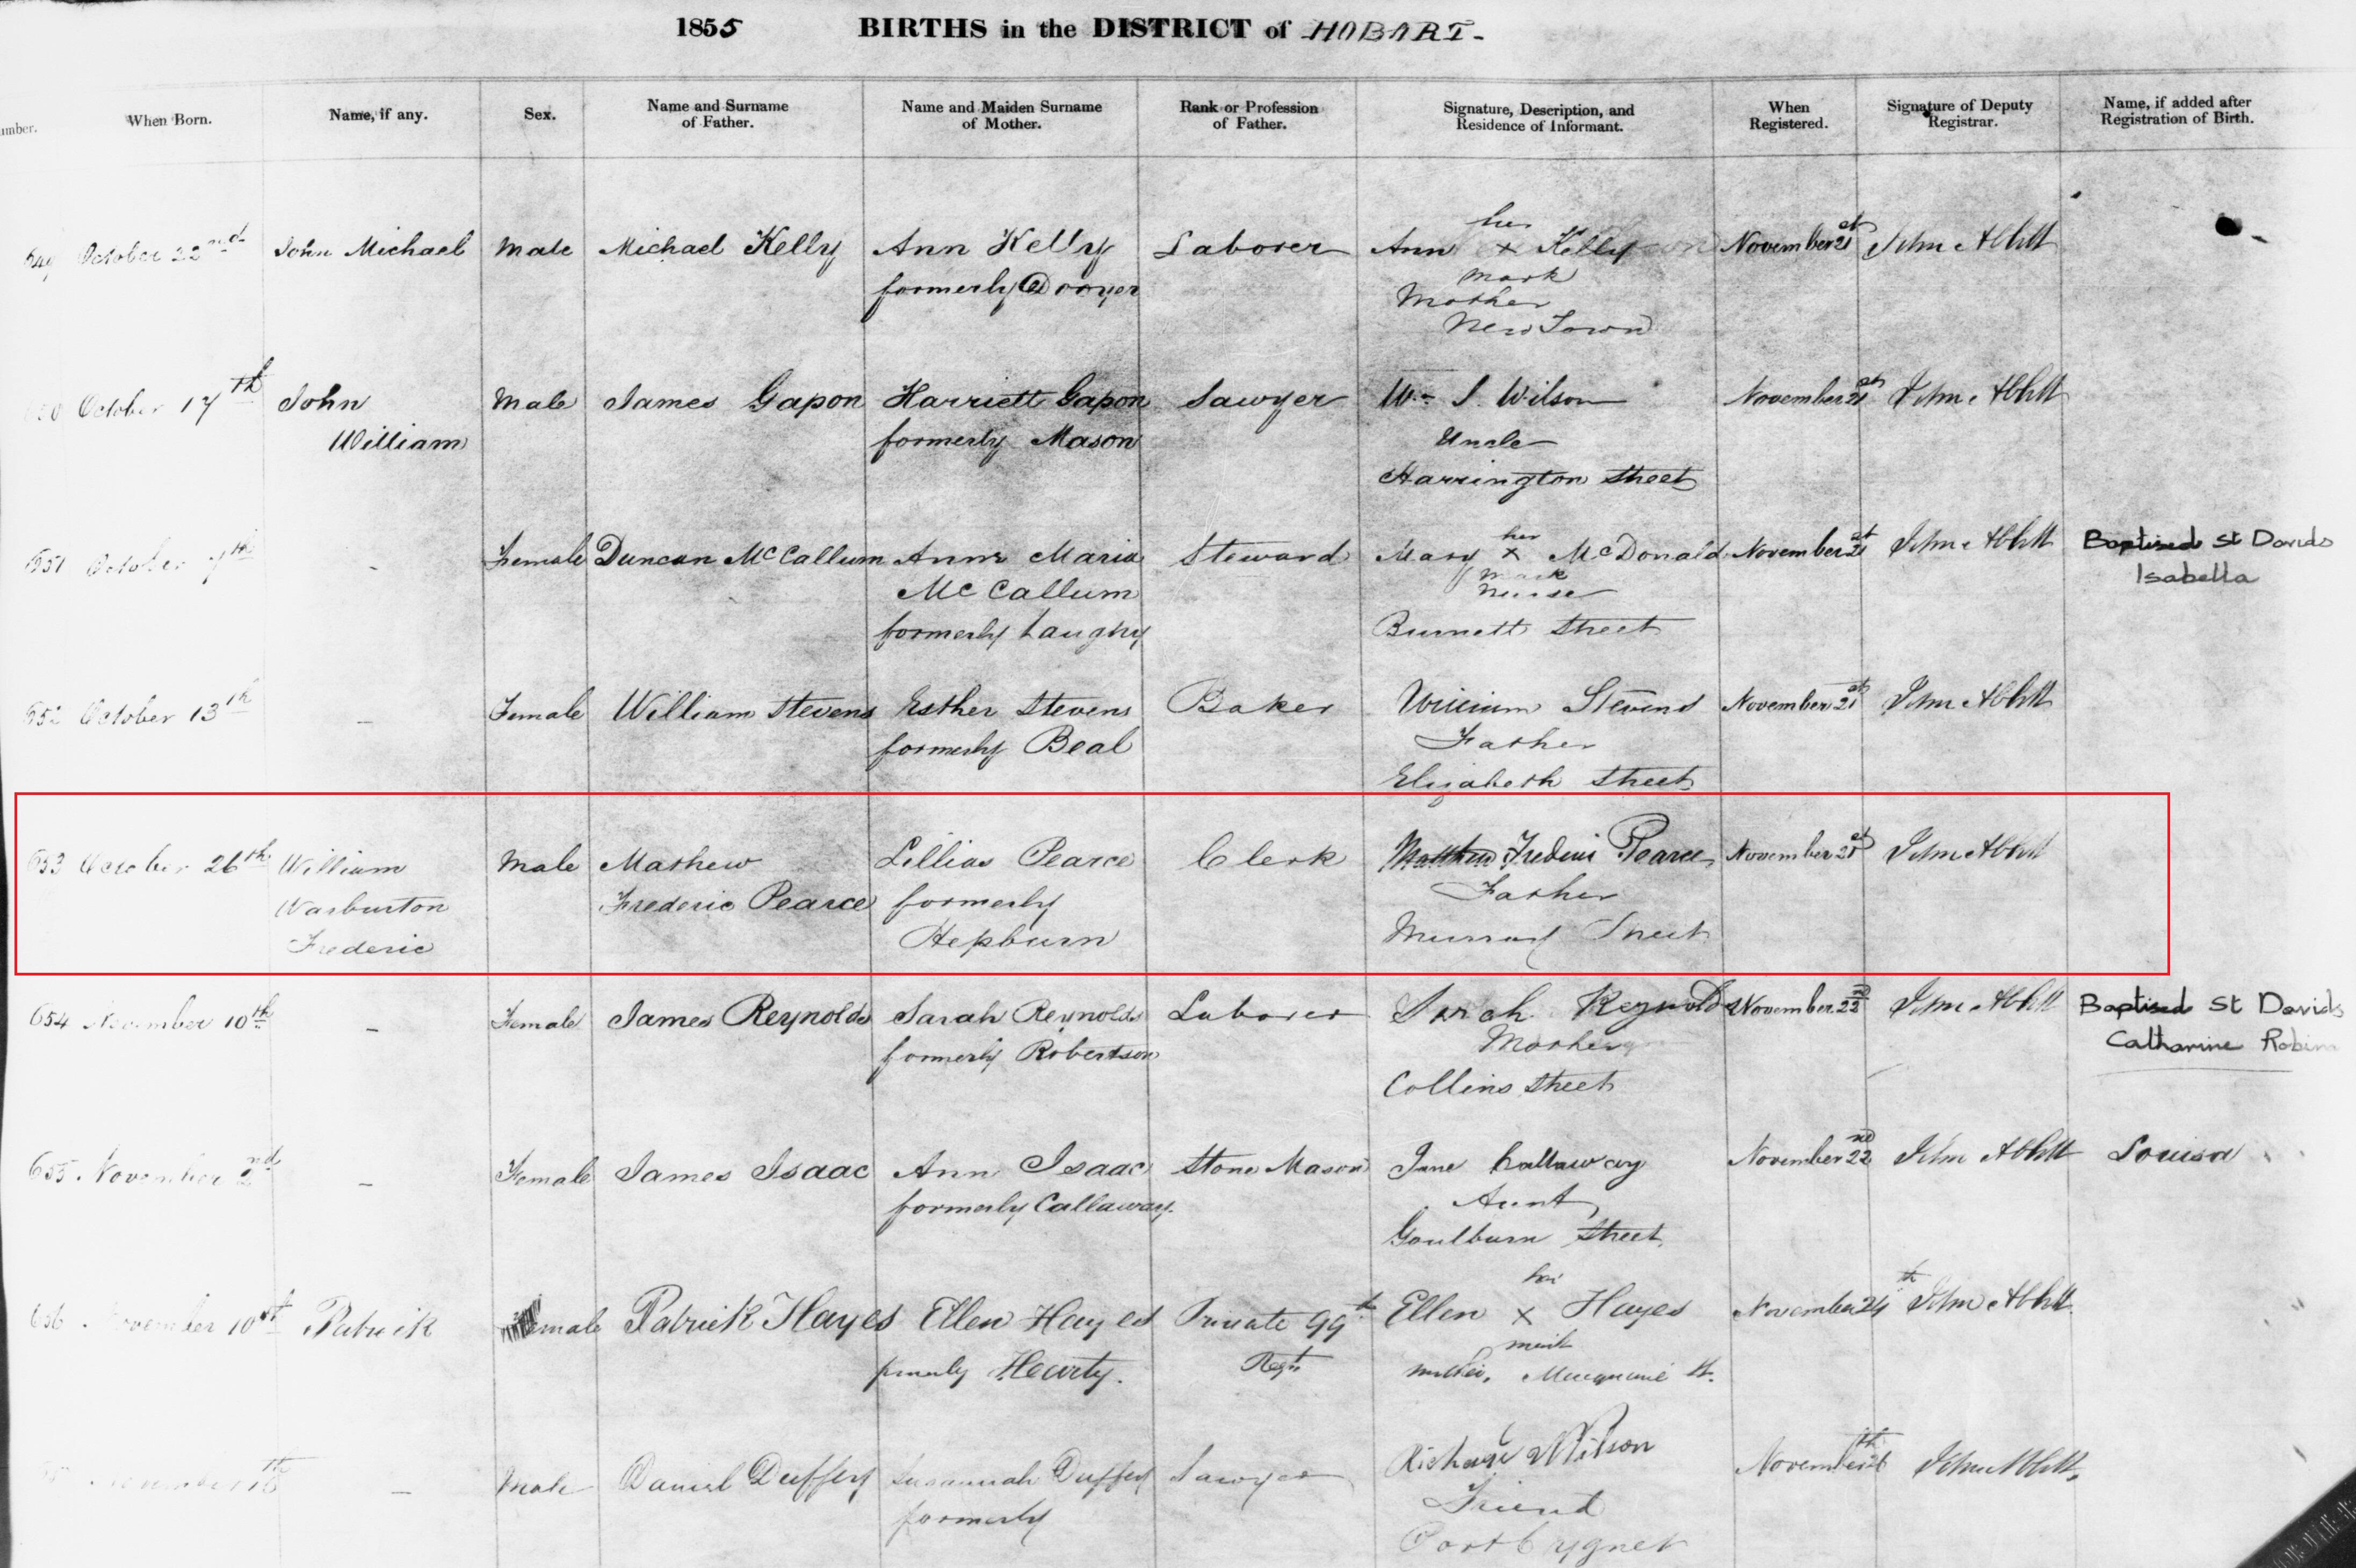 1855 BIRTHS in the DISTRICT of HOBART.
Number. When Born. Name, if any. Sex. Name and Surname of Father. Name and Maiden Surname of Mother. Rank or Profession of Father. Signature, Description, and Residence of Informant. When Registered. Signature of Deputy Registrar. Name, if added after Registration of Birth.
her
649 October 22nd John Michael Male Michael Kelly Ann Kelly Laborer Ann x Kelly November 21st John Abbott
mark
formerly Dwyer Mother
New Town
650 October 17th John Male James Gapon Harriett Gapon Sawyer Wm. J. Wilson November 21st John Abbott
William formerly Mason Uncle
Harrington Street
her
651 October 7th - Female Duncan McCallum Anne Maria Steward Mary x McDonald November 21st John Abbott Baptised St Davids
mark
McCallum Nurse Isabella
formerly Burnett Street
652 October 13th - Female William Stevens Esther Stevens Baker William Stevens November 21st John Abbott
formerly Beal Father
Elizabeth Street
653 October 26th William Male Mathew Lillias Pearce Clerk Matthew Frederic Pearce November 21st John Abbott
Warburton Frederic Pearce formerly Father
Frederic Hepburn Murray Street
654 November 10th - Female James Reynolds Sarah Reynolds Laborer Sarah Reynolds November 22nd John Abbott Baptised St Davids
formerly Robertson Mother Catharine
Collins Street
655 November 2nd - Female James Isaac Ann Isaac Stone Mason Jane Callaway November 22nd John Abbott Louisa
formerly Callaway. Aunt
Goulburn Street
656 November 10th Patrick male Patrick Hayes Ellen Hayes Private 99th Ellen x Hayes November 24th John Abbott
mark
formerly Hearty. Regt Mother, Macquarie St.
November 16th - Male Daniel Duffey Susannah Duffey Sawyer Richard Wilson November 26th John Abbott
formerly Friend
Port Cygnet